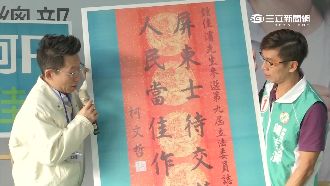 總部
三立新聞網
setn.com
鍾佳濱先生參選第九屆立法委員誌
屏東士待交
人民當佳作
柯文哲